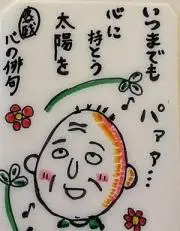 いつまでも
パァァ…
心に
持とう
太陽を
心の俳句